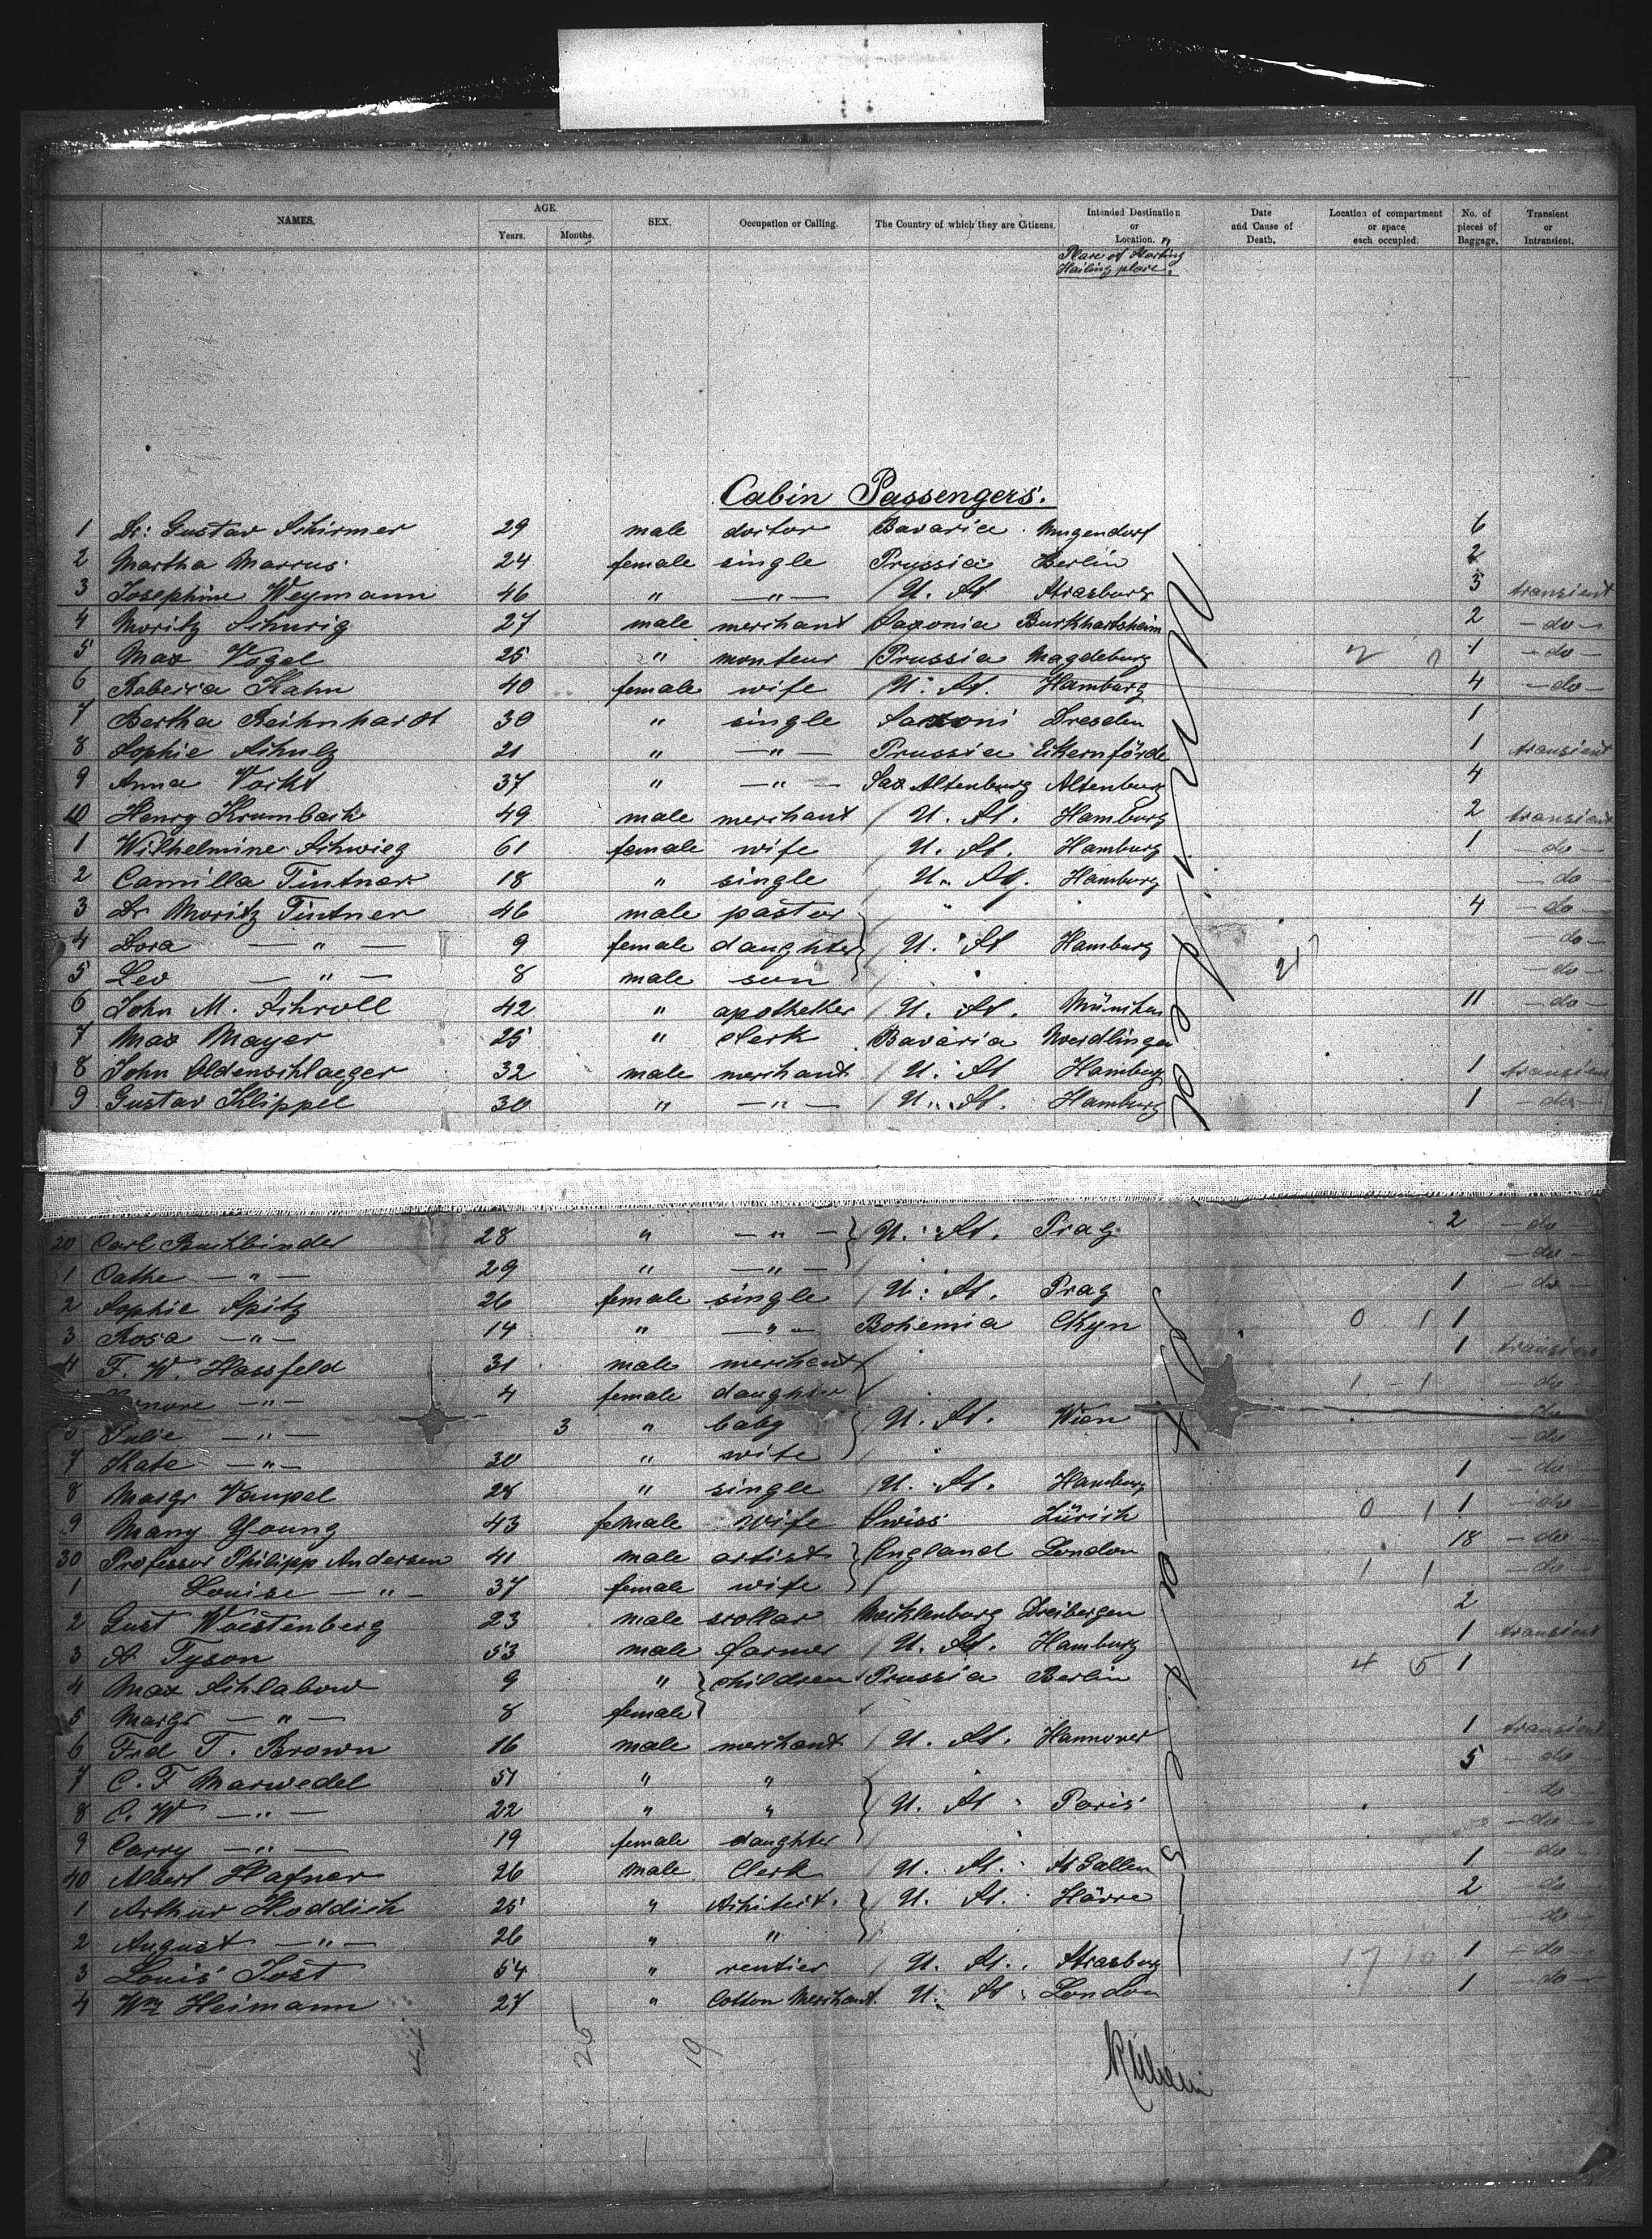 NAMES. AGE. Years. Months. SEX. Occupation or Calling. The Country of which they are Citizens. Intended Destination or Location. Date and Cause of Death. Location of compartment or space each occupied. No. of pieces of Baggage. Transient or Intransient.
Place of starting
Hailing place.
Cabin Passengers.
1 Dr: Gustav Schirmer 29 male doctor Bavaria Mugendorf 6
2 Martha Marcus 24 female single Prussia Berlin 2
3 Josephine Weymann 46 " —"— U. St Strasburg 3 transient
4 Moritz Schurig 27 male merchant Saxonia Burkhartsheim 2 —do—
5 Max Vogel 25 " monteur Prussia Magdeburg 1 —do—
6 Rebecca Kahn 40 female wife U. St. Hamburg 4 —do—
7 Bertha Reihnhardt 30 " single Saxoni Dresden 1
8 Sophie Schulz 21 " —"— Prussia Eckernförde 1 transient
9 Anna Vockt 37 " —"— Sax Altenburg Altenburg 4
10 Henry Krumbach 49 male merchant U. St. Hamburg 2 transient
1 Wilhelmine Schwieg 61 female wife U. St. Hamburg 1 do—
2 Camilla Tintner 18 " single U. St. Hamburg —do
3 Dr Moritz Tintner 46 male pastor " 4 —do—
4 Dora —"— 9 female daughter U. St Hamburg —do—
5 Leo —"— 8 male son —do—
6 John M. Schroll 42 " apotheker U. St. München 11 —do—
7 Max Mayer 25 " clerk Bavaria Noerdlingen
8 John Oldenschlaeger 32 male merchant U. St Hamburg 1 transient
9 Gustav Klippel 30 " —"— U. St. Hamburg 1 —do—
20 Carl Buchbinder 28 " —"— U. St. Prag 2 —do
1 Cathe —"— 29 " —"— —do—
2 Sophie Spitz 26 female single U. St. Prag 1 —do—
3 Rosa —"— 14 " —"— Bohemia Ckyn 0 1 1
4 F. W. Hassfeld 31 male merchant 1 transient
—"— 4 female daughter 1 - 1 —do—
Julie —"— 3 " baby U. St. Wien do
7 Kate —"— 30 " wife —do—
8 Margr Vaupel 28 " single U. St. Hamburg 1 —do—
9 Many Young 43 female wife Swiss Zürich 0 1 1 —do—
30 Professor Philipp Andersen 41 male artist England London 18 —do—
1 Louise —"— 37 female wife 1 1 —do—
2 Gust Woestenberg 23 male scollar Mecklenburg Dreibergen 2
3 A. Tyson 53 male farmer U. St. Hamburg 1 transient
4 Max Schlabow 9 " children Prussia Berlin 4 5 1
5 Margr —"— 8 female
6 Frd T. Brown 16 male merchant U. St. Hannover 1 transient
7 C. F Marwedel 51 " " 5 —do—
8 C. W —"— 22 " " U. St Paris —do—
9 Carry —"— 19 female daughter —do—
40 Albert Hafner 26 male Clerk U. St. St Gallen 1 —do—
1 Arthur Hoddich 25 " Achitect. U. St. Hävre 2 do
2 August —"— 26 " " —do—
3 Louis Jost 54 " rentier U. St. Strasburg 17 10 1 —do—
4 Wm Heimann 27 " Cotton Merchant U. St London 1 —do—
44 25 19